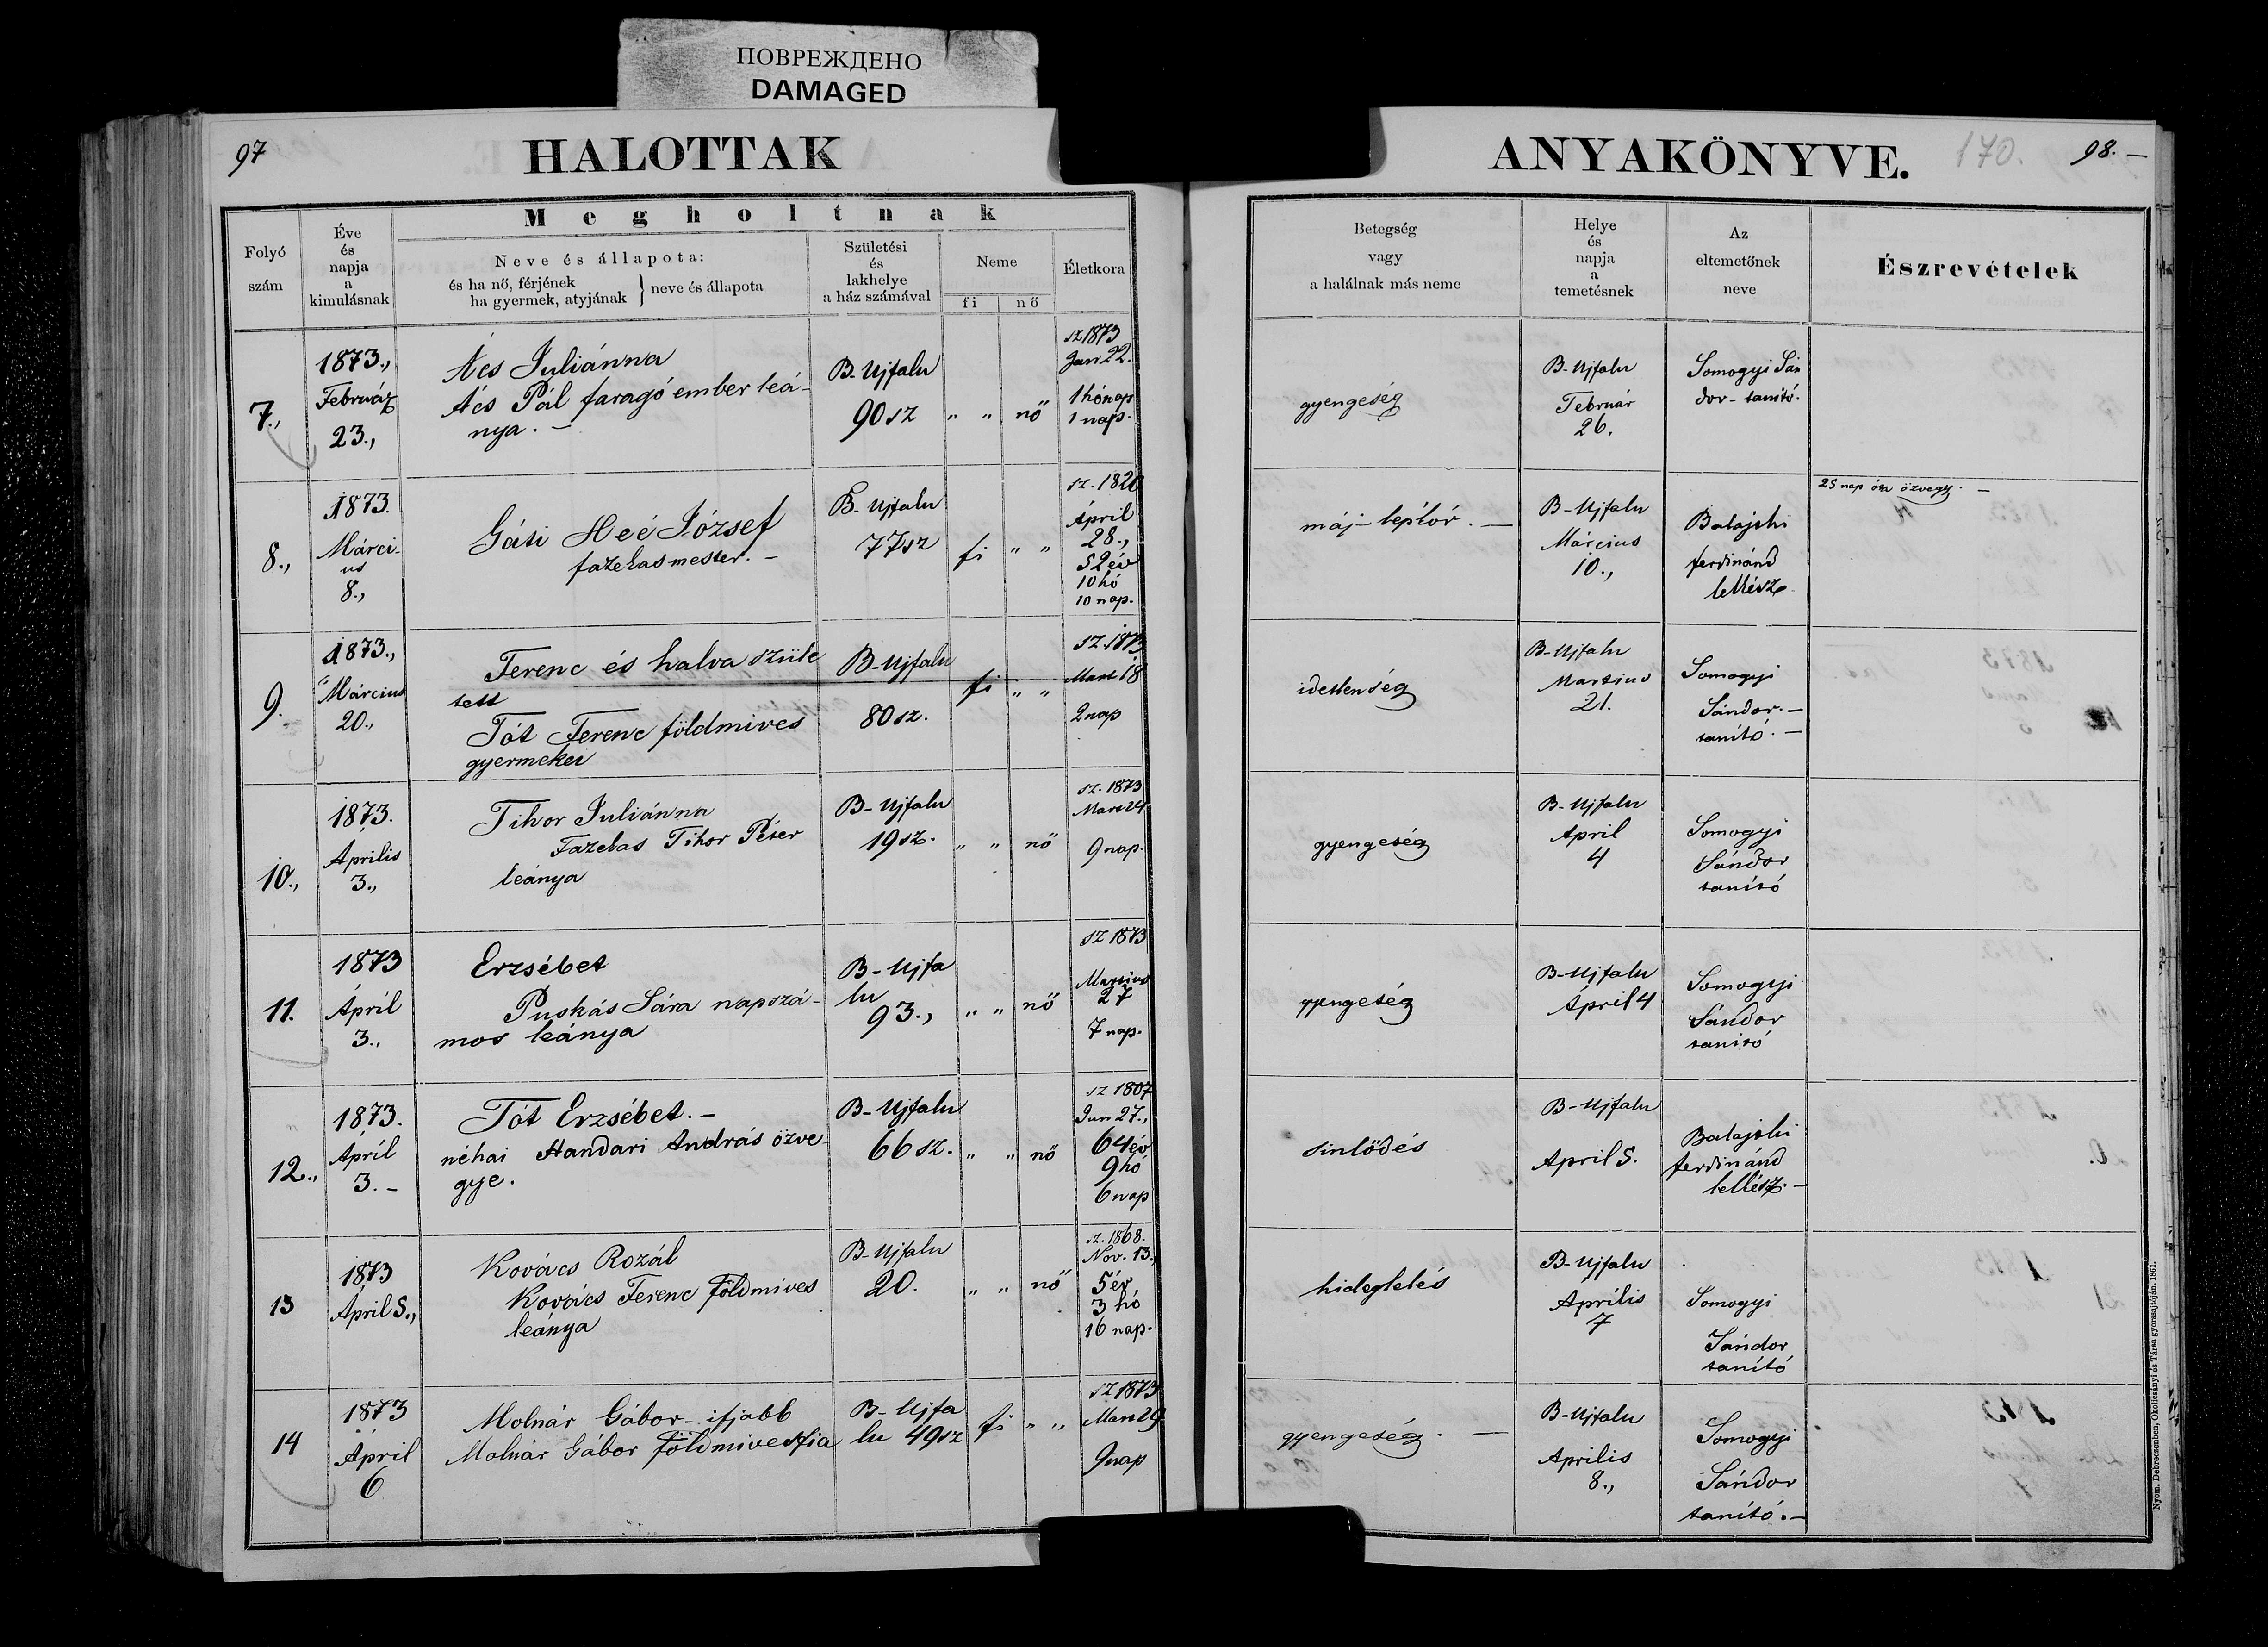 ПОВРЕЖДЕНО
DAMAGED
97
HALOTTAK
ANYAKÖNYVE.
170.
98. —
Folyó
szám
Éve
és
napja
a
kimulásnak
Megholtnak
Neve és állapota:
és ha nő, férjének
ha gyermek, atyjának } neve és állapota
Születési
és
lakhelye
a ház számával
Neme
fi
nő
Életkora
Betegség
vagy
a halálnak más neme
Helye
és
napja
a
temetésnek
Az
eltemetőnek
neve
Észrevételek
7.,
1873.,
Február
23.,
Ács Juliánna
Ács Pál faragó ember leá-
nya. —
B-Ujfalu
90 sz
" "
nő
sz 1873
Jan 22.
1 hónap
1 nap.
gyengeség
B-Ujfalu
Február
26.
Somogyi Sán
dor - tanító.
8.,
1873.
Márci-
us
8.,
József
fazekasmester. —
B-Ujfalu
77 sz
fi
" "
sz. 1820
Ápril
28.,
52 év
10 hó
10 nap.
máj-
B-Ujfalu
Március
10.,
Balajshi
ferdinánd
lelkész
25 nap óta özvegy. —
9.
1873.,
Március
20.,
Ferenc és halva szüle
tett
Tót Ferenc földmives
gyermekei
B-Ujfalu
80 sz.
fi
" "
sz. 1873
Mart 18
2 nap
idétlenség
B-Ujfalu
Martius
21.
Somogyi
Sándor. —
tanító. —
10.,
1873.
Április
3.,
Tihor Juliánna
Fazekas Tihor Péter
leánya
B-Ujfalu
19 sz.
" "
nő
sz. 1873
Mart 24
9 nap.
gyengeség
B-Ujfalu
April
4
Somogyi
Sándor
tanító
11.
1873
Ápril
3.,
Erzsébet
Puskás Sára napszá-
mos leánya
B-Ujfa
lu
93.,
" "
nő
sz 1873
Martius
27
7 nap.
gyengeség
B-Ujfalu
Ápril 4
Somogyi
Sándor
tanító
12.,
1873.
Ápril
3. —
Tót Erzsébet. —
néhai Handari András özve
gye.
B-Ujfalu
66 sz.
" "
nő
sz 1807
Jun 27.,
64 év
9 hó
6 nap
sinlődés
B-Ujfalu
April 5.
Balajshi
ferdinánd
lelkész. —
13
1873
April 5.,
Kovács Rozál
Kovács Ferenc földmives
leánya
B-Ujfalu
20.
" "
nő
sz. 1868.
Nov. 13.,
5 év
3 hó
16 nap.
hideglelés
B-Ujfalu
Április
7
Somogyi
Sándor
tanító
14
1873
Ápril
6
Molnár Gábor - ifjabb
Molnár Gábor földmives fia
B-Ujfa
lu 49 sz
fi
" "
sz 1873
Mart 29
9 nap
gyengeség. —
B-Ujfalu
Aprilis
8.,
Somogyi
Sándor
tanító. —
Nyom. Debreczenben, Okolicsányi és Társa gyorssajtóján. 1861.